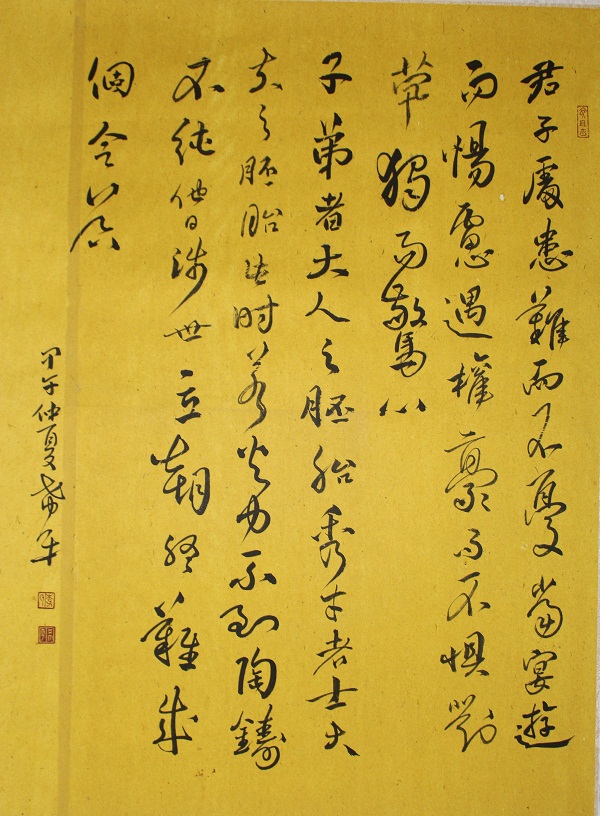 君子處患難而不憂當宴遊
而惕慮遇權豪而不懼對
茕獨而驚心
子弟者大人之胚胎秀才者士大
夫之胚胎此时若火力不到陶鑄
不純他日涉世立朝終難成
個令器
甲午仲夏